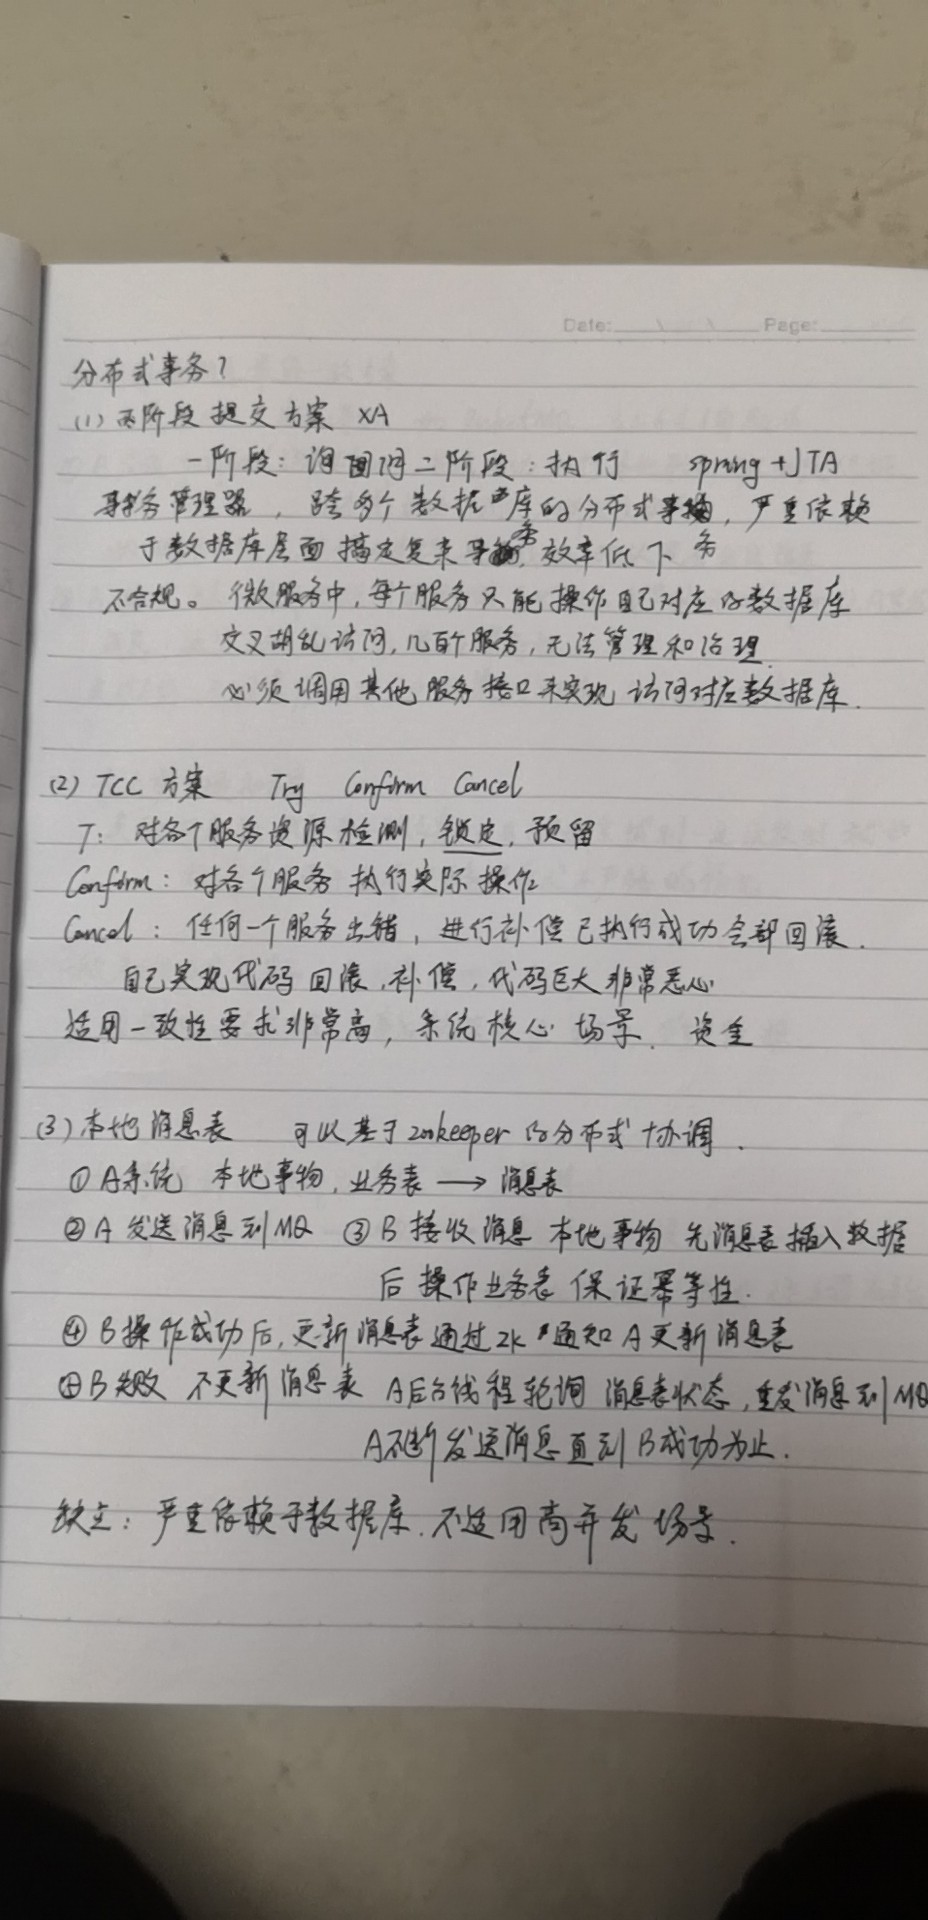 Date: Page:
分布式事务?
(1) 两阶段提交方案 XA
一阶段: 询问 二阶段: 执行 spring + JTA
事务管理器, 跨多个数据库的分布式事务, 严重依赖
于数据库层面搞定复杂事务. 效率低下
不合规。微服务中, 每个服务只能操作自己对应的数据库
交叉胡乱访问, 几百个服务, 无法管理和治理.
必须调用其他服务接口来实现访问对应数据库.
(2) TCC 方案 Try Confirm Cancel
T: 对各个服务资源检测, 锁定, 预留
Confirm: 对各个服务执行实际操作
Cancel: 任何一个服务出错, 进行补偿已执行成功全部回滚.
自己实现代码回滚, 补偿, 代码巨大非常恶心
适用一致性要求非常高, 系统核心场景. 资金
(3) 本地消息表 可以基于zookeeper的分布式协调.
① A系统 本地事物, 业务表 → 消息表
② A 发送消息到MQ ③ B 接收消息 本地事物 先消息表插入数据
后操作业务表 保证幂等性.
④ B操作成功后, 更新消息表通过zk通知A更新消息表
④ B失败 不更新消息表 A后台线程轮询 消息表状态, 重发消息到MQ
A不断发送消息直到B成功为止.
缺点: 严重依赖于数据库. 不适用高并发场景.